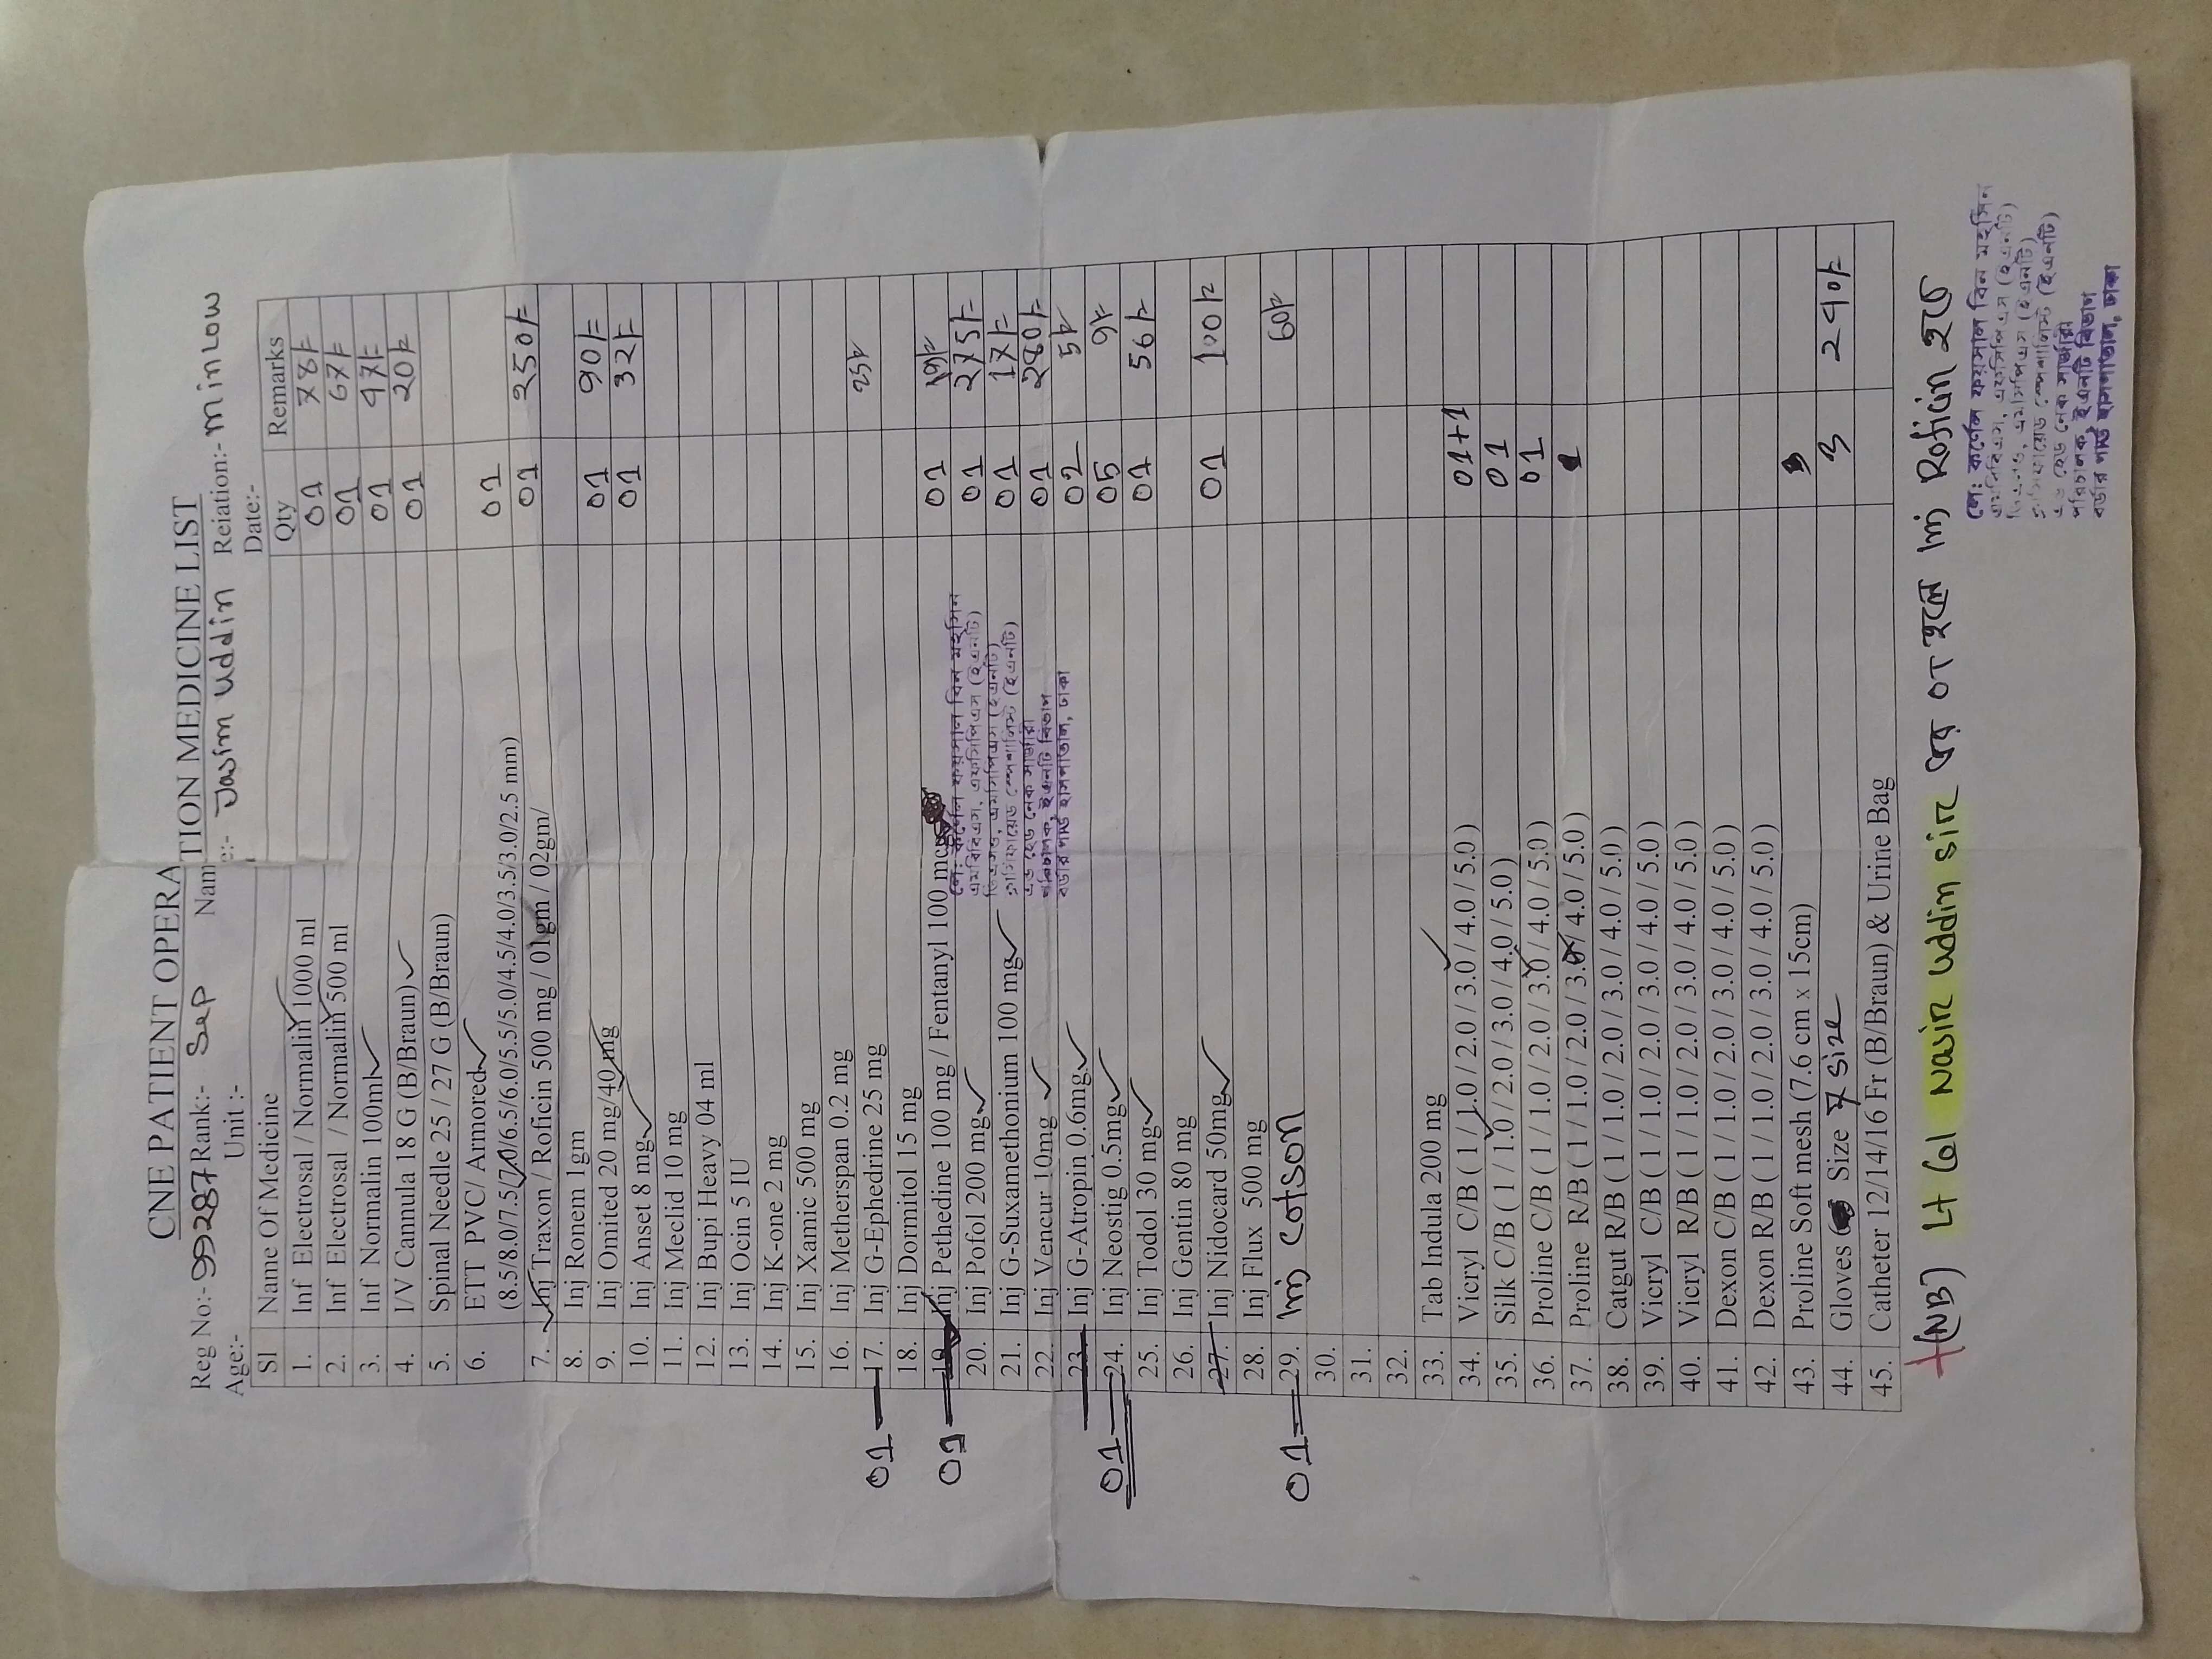 CNE PATIENT OPERATION MEDICINE LIST
Reg No:- 99287 Rank:- Sep Name:- Jasim Uddin Reiation:- minlow
Age:- Unit :- Date:-
Sl Name Of Medicine Qty Remarks
1. Inf Electrosal / Normalin 1000 ml 01 78/=
2. Inf Electrosal / Normalin 500 ml 01 67/=
3. Inf Normalin 100ml 01 47/=
4. I/V Cannula 18 G (B/Braun) 01 20/=
5. Spinal Needle 25 / 27 G (B/Braun)
6. ETT PVC/ Armored 01
(8.5/8.0/7.5/7.0/6.5/6.0/5.5/5.0/4.5/4.0/3.5/3.0/2.5 mm)
7. Inj Traxon / Roficin 500 mg / 01gm / 02gm/ 01 250/=
8. Inj Ronem 1gm
9. Inj Omited 20 mg/40mg 01 90/=
10. Inj Anset 8 mg 01 32/=
11. Inj Meclid 10 mg
12. Inj Bupi Heavy 04 ml
13. Inj Ocin 5 IU
14. Inj K-one 2 mg
15. Inj Xamic 500 mg
16. Inj Metherspan 0.2 mg
01 17. Inj G-Ephedrine 25 mg 25/=
18. Inj Dormitol 15 mg
01 19. Inj Pethedine 100 mg / Fentanyl 100 mcg 01
20. Inj Pofol 200 mg 01 275/=
21. Inj G-Suxamethonium 100 mg 01 17/=
22. Inj Vencur 10mg 01 280/=
23. Inj G-Atropin 0.6mg 02 5/=
01 24. Inj Neostig 0.5mg 05 9/=
25. Inj Todol 30 mg 01 56/=
26. Inj Gentin 80 mg
27. Inj Nidocard 50mg 01 100/=
28. Inj Flux 500 mg
01 29. Inj Cotson 60/=
30.
31.
32.
33. Tab Indula 200 mg
34. Vicryl C/B ( 1 / 1.0 / 2.0 / 3.0 / 4.0 / 5.0 ) 01+1
35. Silk C/B ( 1 / 1.0 / 2.0 / 3.0 / 4.0 / 5.0 ) 01
36. Proline C/B ( 1 / 1.0 / 2.0 / 3.0 / 4.0 / 5.0 ) 01
37. Proline R/B ( 1 / 1.0 / 2.0 / 3.0 / 4.0 / 5.0 )
38. Catgut R/B ( 1 / 1.0 / 2.0 / 3.0 / 4.0 / 5.0 )
39. Vicryl C/B ( 1 / 1.0 / 2.0 / 3.0 / 4.0 / 5.0 )
40. Vicryl R/B ( 1 / 1.0 / 2.0 / 3.0 / 4.0 / 5.0 )
41. Dexon C/B ( 1 / 1.0 / 2.0 / 3.0 / 4.0 / 5.0 )
42. Dexon R/B ( 1 / 1.0 / 2.0 / 3.0 / 4.0 / 5.0 )
43. Proline Soft mesh (7.6 cm x 15cm)
44. Gloves Size 7 size 3 240/=
45. Catheter 12/14/16 Fr (B/Braun) & Urine Bag
লে: কর্ণেল ফয়সাল বিন মহসিন
এমবিবিএস, এমসিপিএস (ইএনটি)
ডিএলও, এমসিপিএস (ইএনটি)
ক্লাসিফায়েড স্পেশালিস্ট (ইএনটি)
এন্ড হেড নেক সার্জারী
পরিচালক, ইএনটি বিভাগ
বর্ডার গার্ড হাসপাতাল, ঢাকা
(NB) Lt Col Nasir Uddin sir এর OT হলে Inj Roficin হবে
লে: কর্ণেল ফয়সাল বিন মহসিন
এমবিবিএস, এমসিপিএস (ইএনটি)
ডিএলও, এমসিপিএস (ইএনটি)
ক্লাসিফায়েড স্পেশালিস্ট (ইএনটি)
এন্ড হেড নেক সার্জারী
পরিচালক, ইএনটি বিভাগ
বর্ডার গার্ড হাসপাতাল, ঢাকা